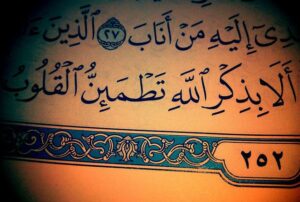 إِلَيْهِ مَنْ أَنَابَ ٢٧ ٱلَّذِينَ
أَلَا بِذِكْرِ ٱللَّهِ تَطْمَئِنُّ ٱلْقُلُوبُ
٢٥٢